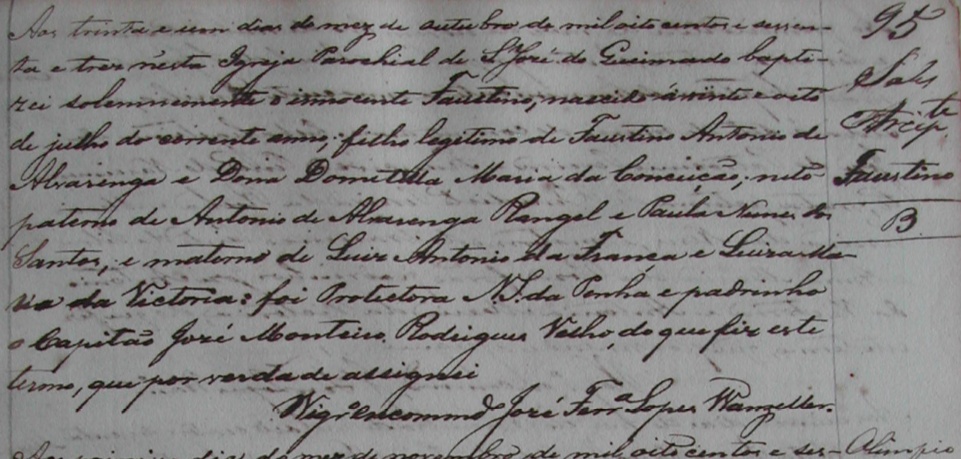 Aos trinta e um dias do mez de outubro de mil oito centos e sessen-
ta e tres nesta Igreja Parochial de S. José do Queimado bapti-
zei solemnemente o innocente Faustino, nascido á vinte e oito
de julho do corrente anno; filho legitimo de Faustino Antonio de
Alvarenga e Dona Domitilla Maria da Conceição; neto
paterno de Antonio de Alvarenga Rangel e Paula Nunes dos
Santos, e materno de Luiz Antonio da França e Luiza Ma-
ria da Victoria: foi Protectora N. S. da Penha e padrinho
o Capitão José Monteiro Rodrigues Velho, do que fiz este
termo, que por verdade assignei
Vigr.º Encommd.º José Ferr.ª Lopes Wanzeller.
dias do mez de novembro de mil oito centos e ses-
95
Faustino
B.
Olimpio